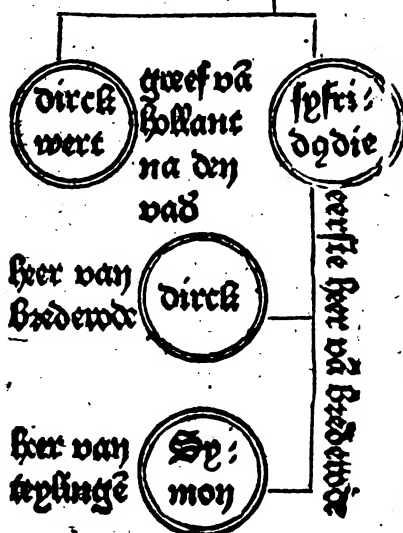 dirck
wert
greef vā
hollant
na den
vad̄
syfri:
dꝰ die
eerste heer vā brederode
heer van
brederode
dirck
heer van
teylingē
Sy:
mon